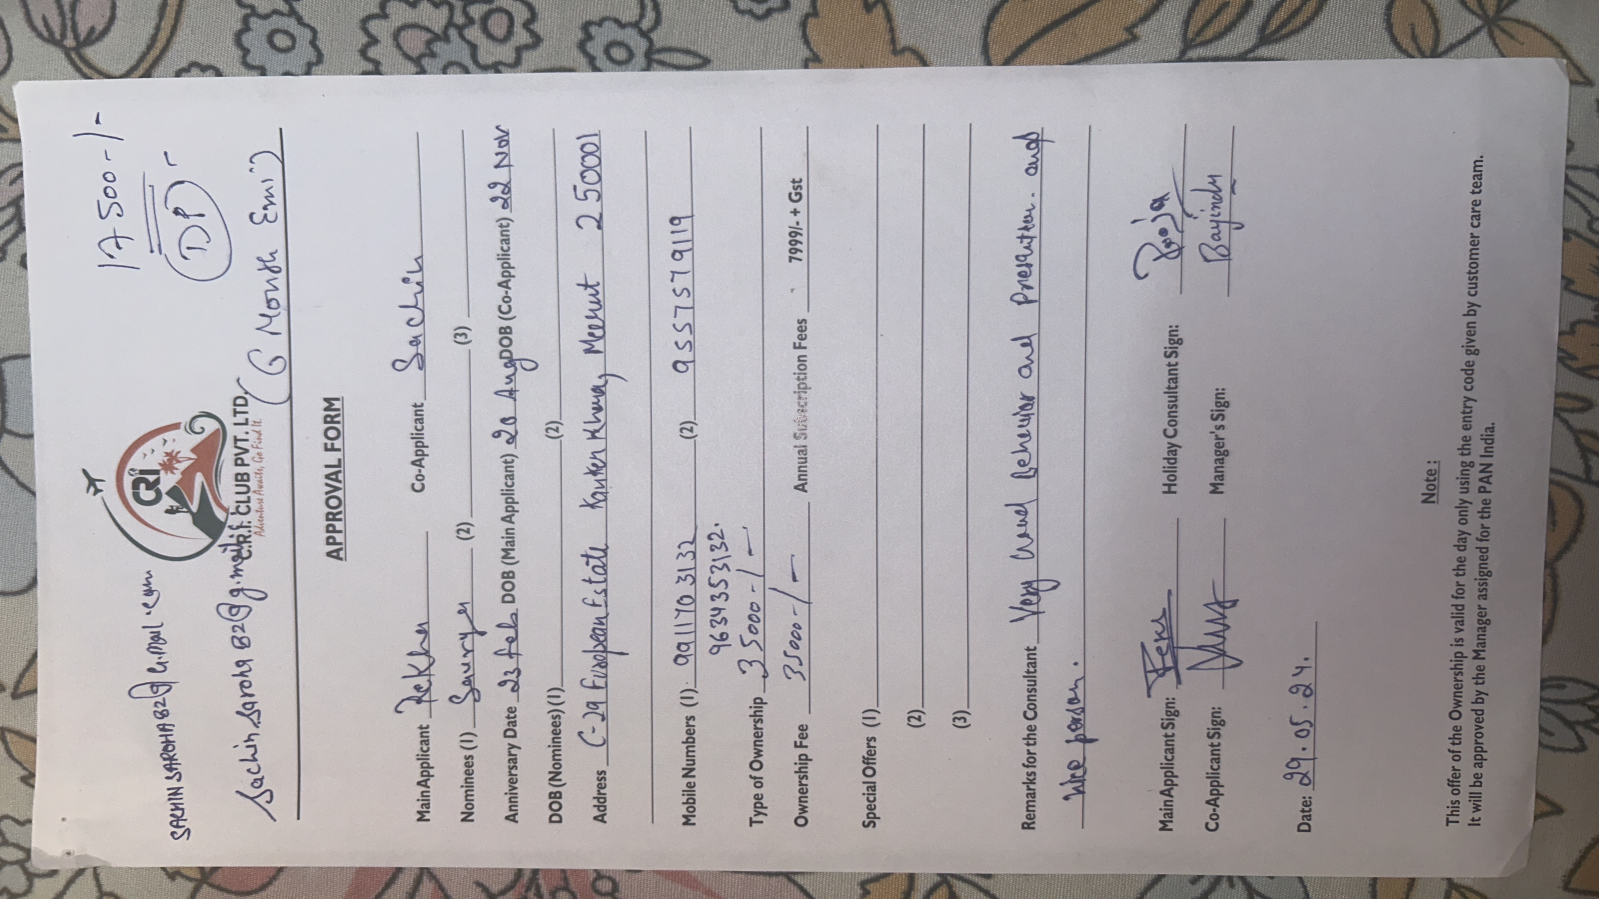 17500-/-
DP
(6 Month Emi)
SACHIN SAROHA82@G.mail.com
Sachin.saroha82@g.mail.
CRI
C.R.I. CLUB PVT. LTD.
Adventure Awaits, Go Find It.
APPROVAL FORM
Main Applicant Rekha Co-Applicant Sachin
Nominees (1) (2) (3)
Anniversary Date 23 feb DOB (Main Applicant) 20 Aug DOB (Co-Applicant) 22 Nov
DOB (Nominees) (1) (2)
Address C-29 European Estate Kanker Khera, Meerut 250001
Mobile Numbers (1) 9911703132 (2) 9557579119
9634353132.
Type of Ownership 35000-/-
Ownership Fee 35000-/- Annual Subscription Fees 7999/- + Gst
Special Offers (1)
(2)
(3)
Remarks for the Consultant Very and and
person.
Main Applicant Sign: Holiday Consultant Sign: Pooja
Co-Applicant Sign: Manager's Sign:
Date: 29.05.24.
Note :
This offer of the Ownership is valid for the day only using the entry code given by customer care team.
It will be approved by the Manager assigned for the PAN India.